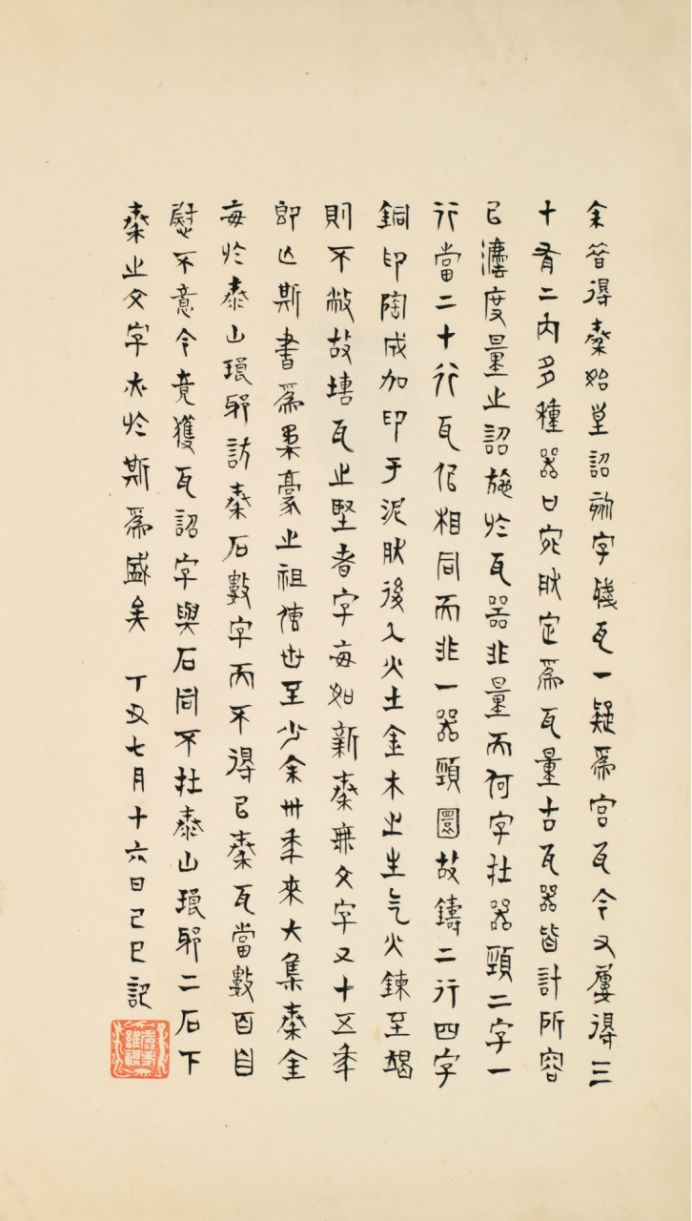 余昔得秦始皇詔殘字殘瓦一疑爲宮瓦今又屢得三
十有二內多種器口宛肰定爲瓦量古瓦器皆計所容
㠯灋度量之詔施於瓦器非量而何字在器頸二字一
行當二十行瓦佀相同而非一器頸圜故鑄二行四字
銅印陶成加印于泥肰後入火土金木之生气火鍊至竭
則不敝故塼瓦之堅者字每如新秦無文字又十五年
即亾斯書爲柔豪之祖傳世至少余卅年來大集秦金
每於泰山琅邪訪秦石數字而不得㠯秦瓦當數百自
慰不意今竟獲瓦詔字與石同不在泰山琅邪二石下
秦之文字亦於斯爲盛矣 丁丑七月十六日己巳記